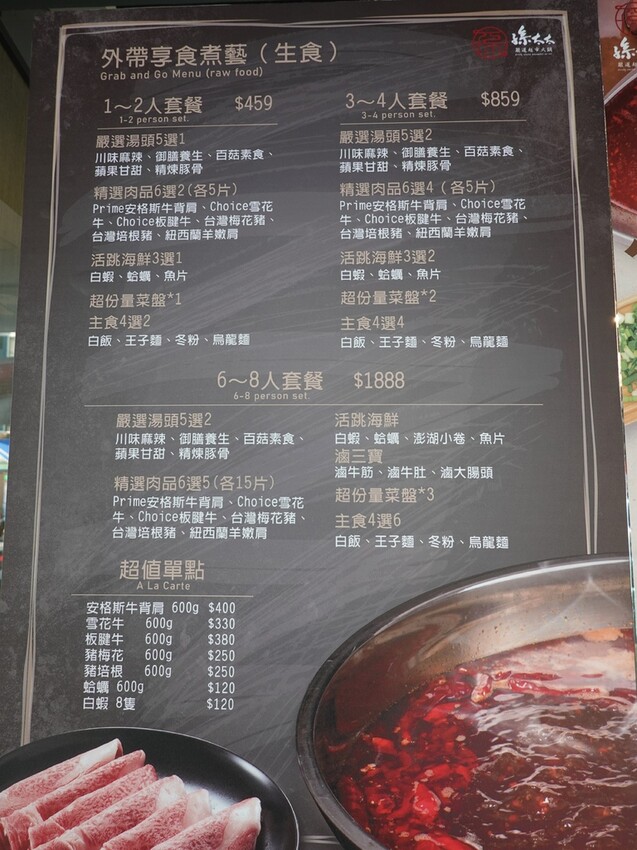 外帶享食煮藝（生食）
Grab and Go Menu (raw food)
孫太太
嚴選超市火鍋
1～2人套餐 $459
1-2 person set.
嚴選湯頭5選1
川味麻辣、御膳養生、百菇素食、
蘋果甘甜、精煉豚骨
精選肉品6選2(各5片)
Prime安格斯牛背肩、Choice雪花
牛、Choice板腱牛、台灣梅花豬、
台灣培根豬、紐西蘭羊嫩肩
活跳海鮮3選1
白蝦、蛤蠣、魚片
超份量菜盤*1
主食4選2
白飯、王子麵、冬粉、烏龍麵
3～4人套餐 $859
3-4 person set.
嚴選湯頭5選2
川味麻辣、御膳養生、百菇素食、
蘋果甘甜、精煉豚骨
精選肉品6選4（各5片）
Prime安格斯牛背肩、Choice雪花
牛、Choice板腱牛、台灣梅花豬、
台灣培根豬、紐西蘭羊嫩肩
活跳海鮮3選2
白蝦、蛤蠣、魚片
超份量菜盤*2
主食4選4
白飯、王子麵、冬粉、烏龍麵
6～8人套餐 $1888
6-8 person set.
嚴選湯頭5選2
川味麻辣、御膳養生、百菇素食、
蘋果甘甜、精煉豚骨
精選肉品6選5(各15片)
Prime安格斯牛背肩、Choice雪花
牛、Choice板腱牛、台灣梅花豬、
台灣培根豬、紐西蘭羊嫩肩
活跳海鮮
白蝦、蛤蠣、澎湖小卷、魚片
滷三寶
滷牛筋、滷牛肚、滷大腸頭
超份量菜盤*3
主食4選6
白飯、王子麵、冬粉、烏龍麵
超值單點
A La Carte
安格斯牛背肩 600g $400
雪花牛 600g $330
板腱牛 600g $380
豬梅花 600g $250
豬培根 600g $250
蛤蠣 600g $120
白蝦 8隻 $120